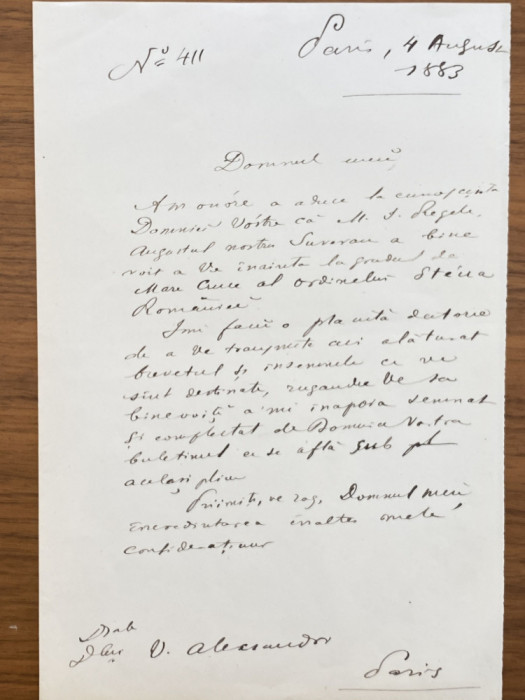 Nº 411
Paris, 4 August
1883
Domnul meŭ,
Am onóre a aduce la cunoscința
Domniei Vóstre că M. S. Regele,
Augustul nostru Suveran a bine
voit a Ve înainta la gradul de
Mare Cruce al ordinelui Stéua
Românieĭ
Imi facŭ o plăcută datorie
de a Ve transmite aci alăturat
brevetul și insemnele ce ve
sint destinate, rugandu Ve sa
binevoiță a mi inapoia semnat
și complectat de Domnia Vostra
buletinul ce se află sub
același plicu
Priimiți, ve rog, Domnul meŭ
încredințarea înaltei mele
considerațiuni
Dsale
Dlui V. Alexandri
Paris